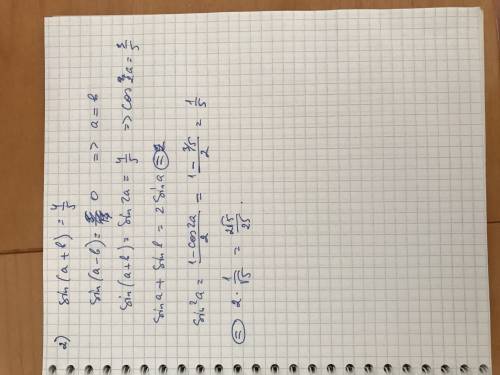 2) sin(a+b) = 4/5
sin(a-b) = 0 => a=b
sin(a+b) = sin 2a = 4/5 => cos 2a = 3/5
sin a + sin b = 2 sin a =
sin² a = (1 - cos 2a)/2 = (1 - 3/5)/2 = 1/5
= 2 · 1/√5 = 2√5/25 .